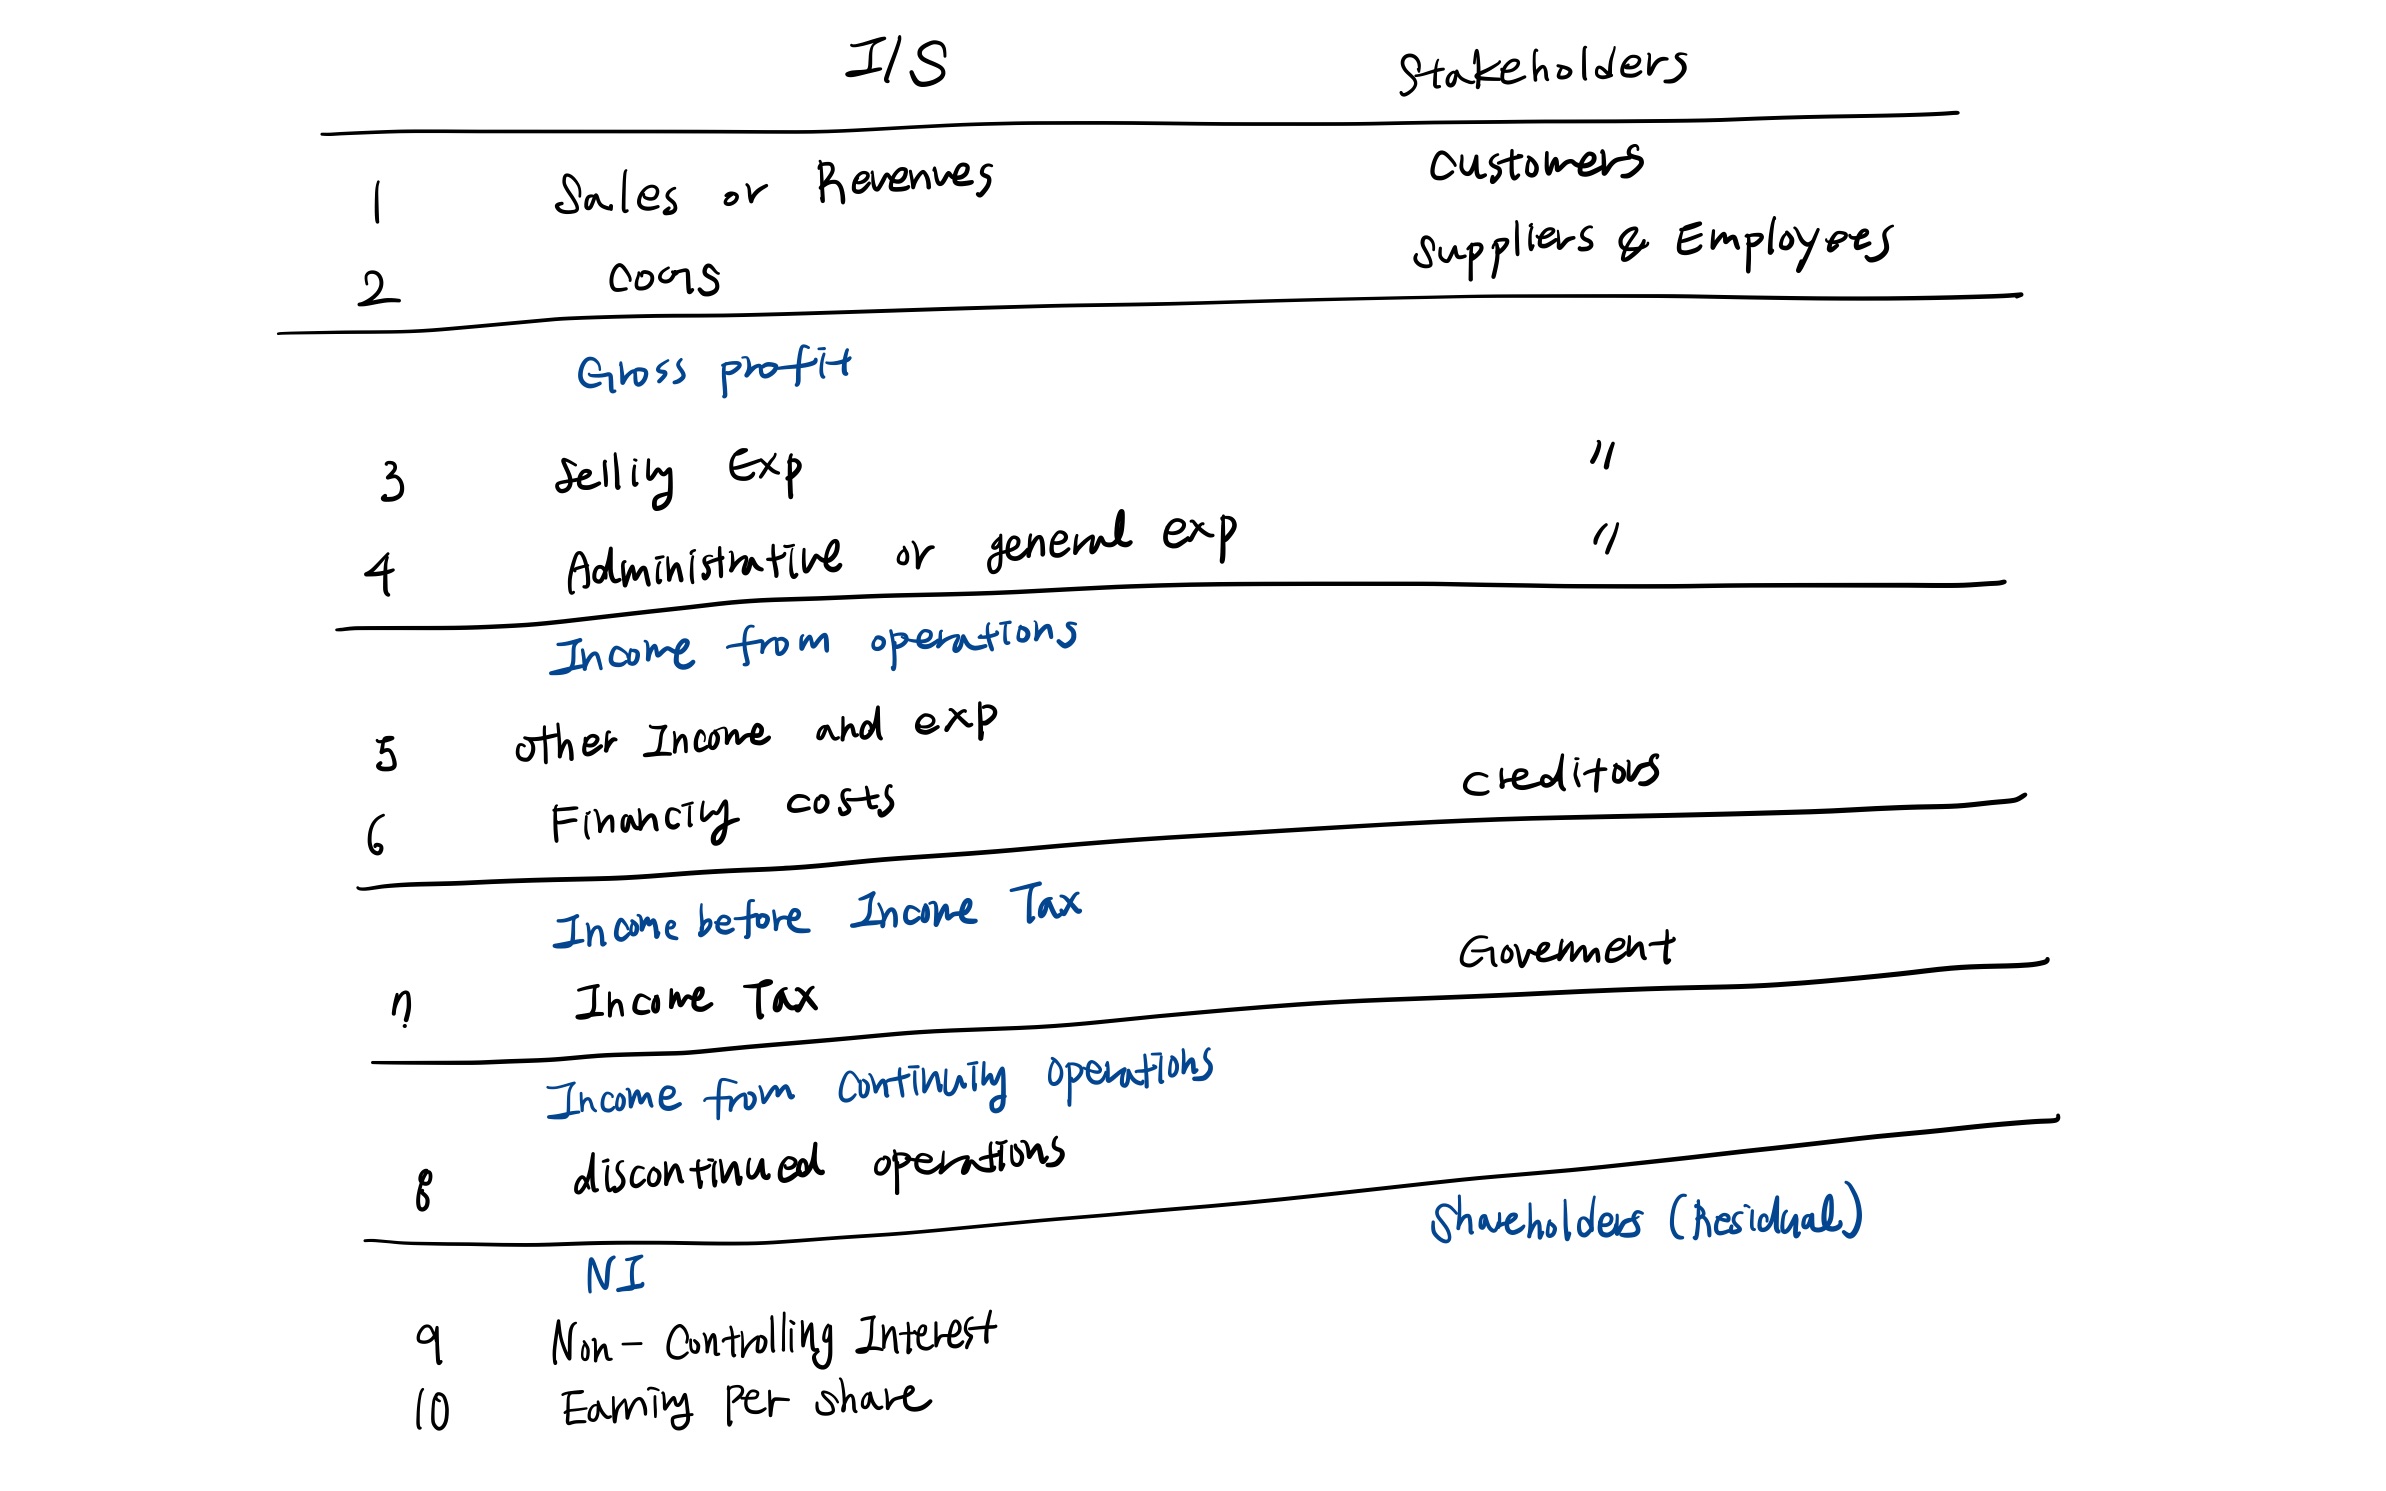 I/S Stakeholders
1 Sales or Revenues Customers
2 COGS Suppliers & Employees
Gross profit
3 Selling Exp "
4 Administrative or general exp "
Income from operations
5 other Income and exp
6 Financing costs creditors
Income before Income Tax
7 Income Tax Goverment
Income from Continuing operations
8 discontinued operations
NI Shareholders (Residual)
9 Non-Controlling Interest
10 Earning Per share